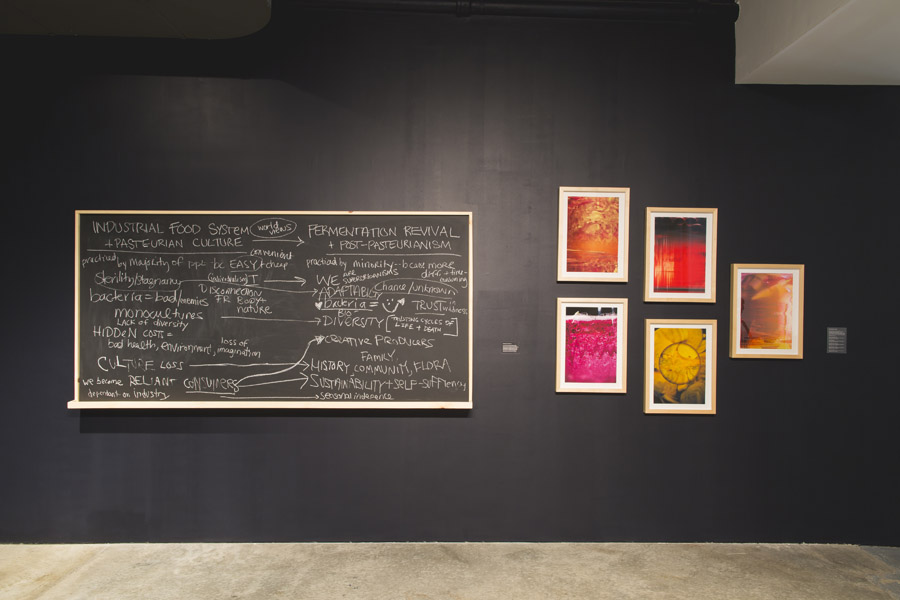 INDUSTRIAL FOOD SYSTEM
+ PASTEURIAN CULTURE
world views
FERMENTATION REVIVAL
+ POST-PASTEURIANISM
convenient
practiced by majority of ppl bc EASY + cheap
sterility/stagnancy
DISCONNECTION
FR BODY +
nature
bacteria = bad/enemies
monocultures
LACK OF DIVERSITY
HIDDEN COSTS =
bad health, environment,
loss of
imagination
CULTURE LOSS
we become RELIANT
dependant on industry
CONSUMERS
practiced by minority - bc are more
diff. + time-
WE are SUPERORGANISMS
ADAPTABILITY change/unknown
bacteria =
TRUST in
BIO
DIVERSITY
CYCLES OF
LIFE + DEATH
CREATIVE PRODUCERS
FAMILY,
HISTORY COMMUNITY, FLORA
SUSTAINABILITY + SELF-SUFFICIENCY